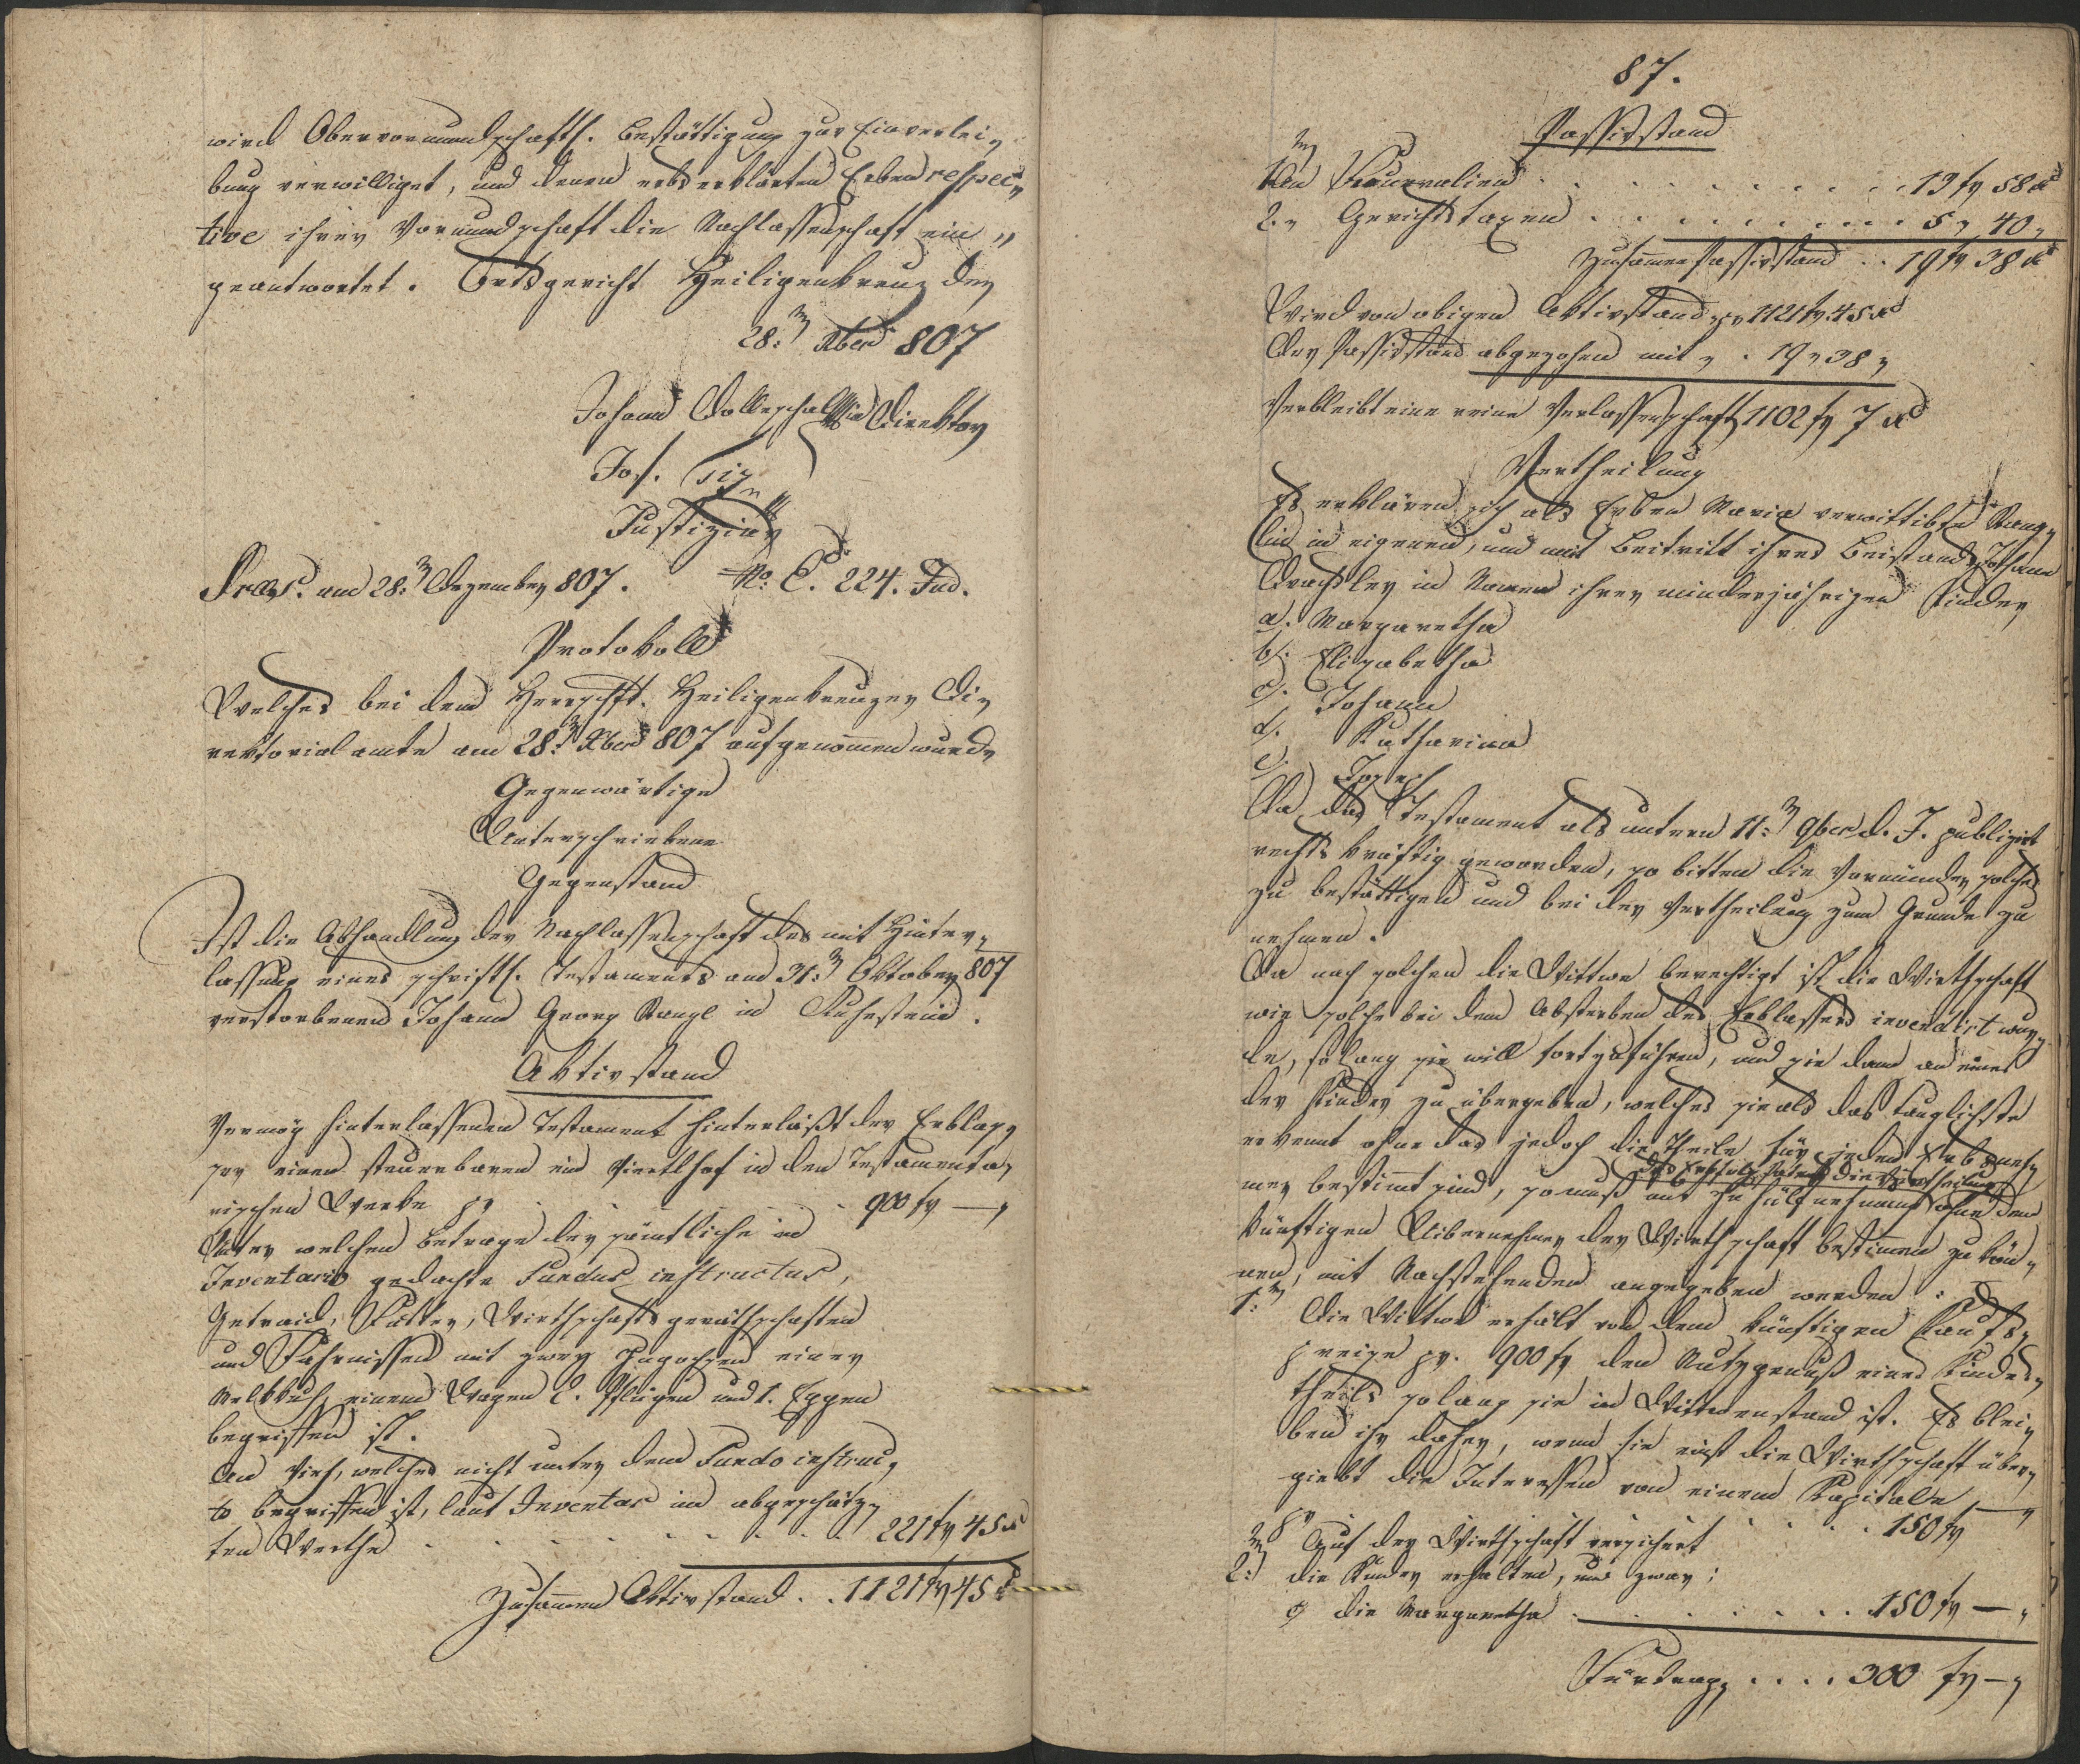 wird Obervormundschaftl. Bestättigung zur Einverlei,
bung verwilliget, und denen erbserklärten Erben respec,
tive ihrer Vormundschaft die Nachlassenschaft ein„
geantwortet. Ortsgericht Heiligenkreuz den
28:n Xber 807
Johann Direktor
Jos.
Justiziär
Praes. am 28:n Dezember 807. No: E. 224. Jud.
Protokoll
Welches bei dem Herrschftl. Heiligenkreuzer Di,
rektorialamte am 28:n Xber 807 aufgenommen wurde
Gegenwärtige
Unterschriebene
Gegenstand
Ist die Abhandlung der Nachlassenschaft des mit Hinter,
lassung eines schriftl. Testaments am 31:n Oktober 807
verstorbenen Johann Georg Rangl in Ruhestein.
Aktivstand
Vermög hinterlassenen Testament hinterläßt der Erblas,
ser einen steuerbaren ein Viertlhof in den Testamenta,
rischen Werthe pr . . . 900 fr —„
Unter welchen Betrage der sämtliche in
Inventario gedachte Fundus instructus,
Getraid, Futter, Wirthschaftsgeräthschaften
und Fahrnissen mit zwey Zugochsen einer
Melkkuh, einem Wagen 2. Pflügen und 1. Eggen
begriffen ist.
An Vieh, welches nicht unter dem Fundo instruc,
to begriffen ist, laut Inventar im abgeschätz,
ten Werthe . . . . . . 221 fr 45 x
Zusammen Aktivstand . . 1121 fr 45 x
87.
Passivstand
An Funeralien . . . . . . . . . . 13 fr 58 x
2. „ Gerichtstaxen . . . . . . . . . . 5 „ 40 „
Zusammen Passivstand . . 19 fr 38 x
Wird von obigen Aktivstand pr 1121 fr 45 x
Der Passivstand abgezohen mit „ . 19 „ 38 „
Verbleibt eine reine Verlassenschaft 1102 fr 7 x
Vertheilung
Es erklären sich als Erben Maria verwittibte Rang,
lin in eigenen, und mit Beitritt ihres Beistands Johann
Drachsler in Namen ihrer minderjährigen Kinder
a). Margaretha
b). Elisabetha
c). Johann
d). Katharina
e). Joseph
Da das Testament als untern 11:n 9ber d. J. publizirt
rechtskräftig geworden, so bitten die Vormünder solches
zu bestättigen und bei der Vertheilung zum Grunde zu
nehmen.
Da nach solchen die Wittwe berechtigt ist die Wirthschaft
wie solche bei dem Absterben des Erblassers inventirt wur„
de, solang sie will fortzuführen, und sie dann an eines
der Kinder zu übergeben, welches sie als das tauglichste
erkennt ohne das jedoch die Theile für jeden Erbsneh,
mer bestimt sind, so muß die Vertheilung ohne dem
künftigen Uibernehmer der Wirthschaft bestimmen zu kön„
nen, mit Nachstehenden angegeben werden:
1:n Die Wittwe erhält von dem künftigen Kaufs„
preise pr. 900 fr den Nutzgenuß eines Kindes„
theils solang sie im Wittwenstand ist. Es blei„
ben ihr daher, wenn sie einst die Wirthschaft über„
giebt die Interessen von einem Kapitale
pr . . . . 150 fr —„
Auf der Wirthschaft versichert
2:n die Kinder erhalten, und zwar:
a) die Margaretha . . . . . . . 150 fr —„
Fürtrag . . . . 300 fr —„